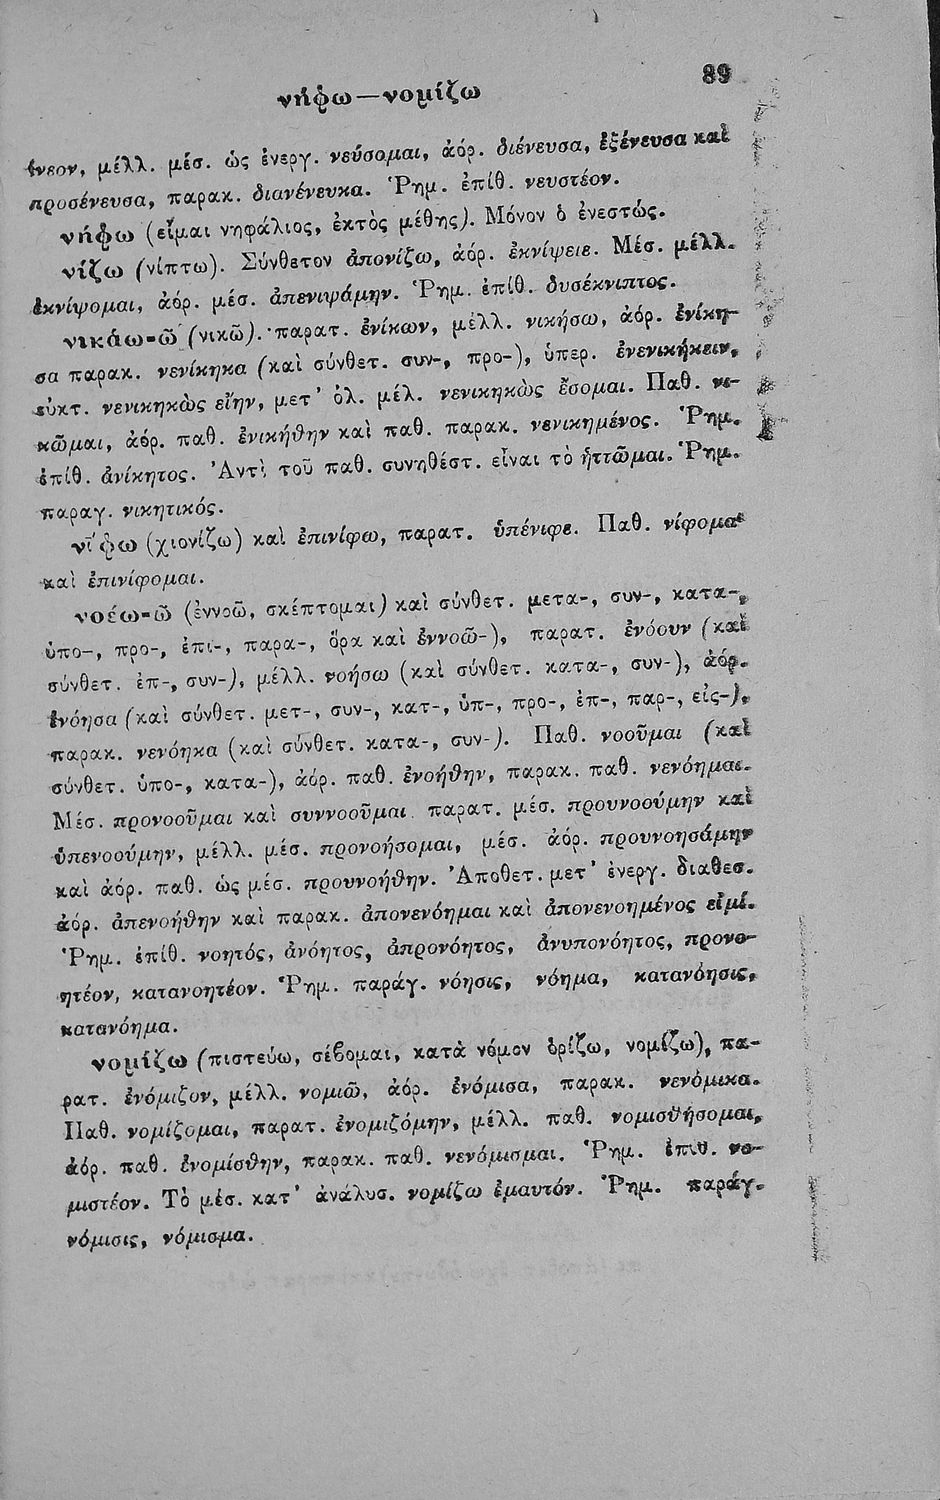 89
νήφω—νομίζω
ἔνεον, μέλλ. μέσ. ὡς ἐνεργ. νεύσομαι, ἀόρ. διένευσα, ἐξένευσα καὶ
προσένευσα, παρακ. διανένευκα. Ῥημ. ἐπίθ. νευστέον.
νήφω (εἶμαι νηφάλιος, ἐκτὸς μέθης). Μόνον ὁ ἐνεστώς.
νίζω (νίπτω). Σύνθετον ἀπονίζω, ἀόρ. ἐκνίψειε. Μέσ. μέλλ.
ἐκνίψομαι, ἀόρ. μέσ. ἀπενιψάμην. Ῥημ. ἐπίθ. δυσέκνιπτος.
νικάω-ῶ (νικῶ). παρατ. ἐνίκων, μέλλ. νικήσω, ἀόρ. ἐνίκη-
σα παρακ. νενίκηκα (καὶ σύνθετ. συν-, προ-), ὑπερ. ἐνενικήκειν,
εὐκτ. νενικηκὼς εἴην, μετ' ὁλ. μέλ. νενικηκὼς ἔσομαι. Παθ. νι-
κῶμαι, ἀόρ. παθ. ἐνικήθην καὶ παθ. παρακ. νενικημένος. Ῥημ.
ἐπίθ. ἀνίκητος. Ἀντὶ τοῦ παθ. συνηθέστ. εἶναι τὸ ἡττῶμαι. Ῥημ.
παραγ. νικητικός.
νίφω (χιονίζω) καὶ ἐπινίφω, παρατ. ὑπένιφε. Παθ. νίφομαι
καὶ ἐπινίφομαι.
νοέω-ῶ (ἐννοῶ, σκέπτομαι) καὶ σύνθετ. μετα-, συν-, κατα-,
ὑπο-, προ-, ἐπι-, παρα-, ὅρα καὶ ἐννοῶ-), παρατ. ἐνόουν (καὶ
σύνθετ. ἐπ-, συν-), μέλλ. νοήσω (καὶ σύνθετ. κατα-, συν-), ἀόρ.
ἐνόησα (καὶ σύνθετ. μετ-, συν-, κατ-, ὑπ-, προ-, ἐπ-, παρ-, εἰς-),
παρακ. νενόηκα (καὶ σύνθετ. κατα-, συν-). Παθ. νοοῦμαι (καὶ
σύνθετ. ὑπο-, κατα-), ἀόρ. παθ. ἐνοήθην, παρακ. παθ. νενόημαι.
Μέσ. προνοοῦμαι καὶ συννοοῦμαι παρατ. μέσ. προυνοούμην καὶ
ὑπενοούμην, μέλλ. μέσ. προνοήσομαι, μέσ. ἀόρ. προυνοησάμην
καὶ ἀόρ. παθ. ὡς μέσ. προυνοήθην. Ἀποθετ. μετ' ἐνεργ. διαθεσ.
ἀόρ. ἀπενοήθην καὶ παρακ. ἀπονενόημαι καὶ ἀπονενοημένος εἰμί.
Ῥημ. ἐπίθ. νοητός, ἀνόητος, ἀπρονόητος, ἀνυπονόητος, προνο-
ητέον, κατανοητέον. Ῥημ. παράγ. νόησις, νόημα, κατανόησις,
κατανόημα.
νομίζω (πιστεύω, σέβομαι, κατὰ νόμον ὁρίζω, νομίζω), πα-
ρατ. ἐνόμιζον, μέλλ. νομιῶ, ἀόρ. ἐνόμισα, παρακ. νενόμικα.
Παθ. νομίζομαι, παρατ. ἐνομιζόμην, μέλλ. παθ. νομισθήσομαι,
ἀόρ. παθ. ἐνομίσθην, παρακ. παθ. νενόμισμαι. Ῥημ. ἐπιθ. νο-
μιστέον. Τὸ μέσ. κατ' ἀνάλυσ. νομίζω ἐμαυτόν. Ῥημ. παράγ.
νόμισις, νόμισμα.